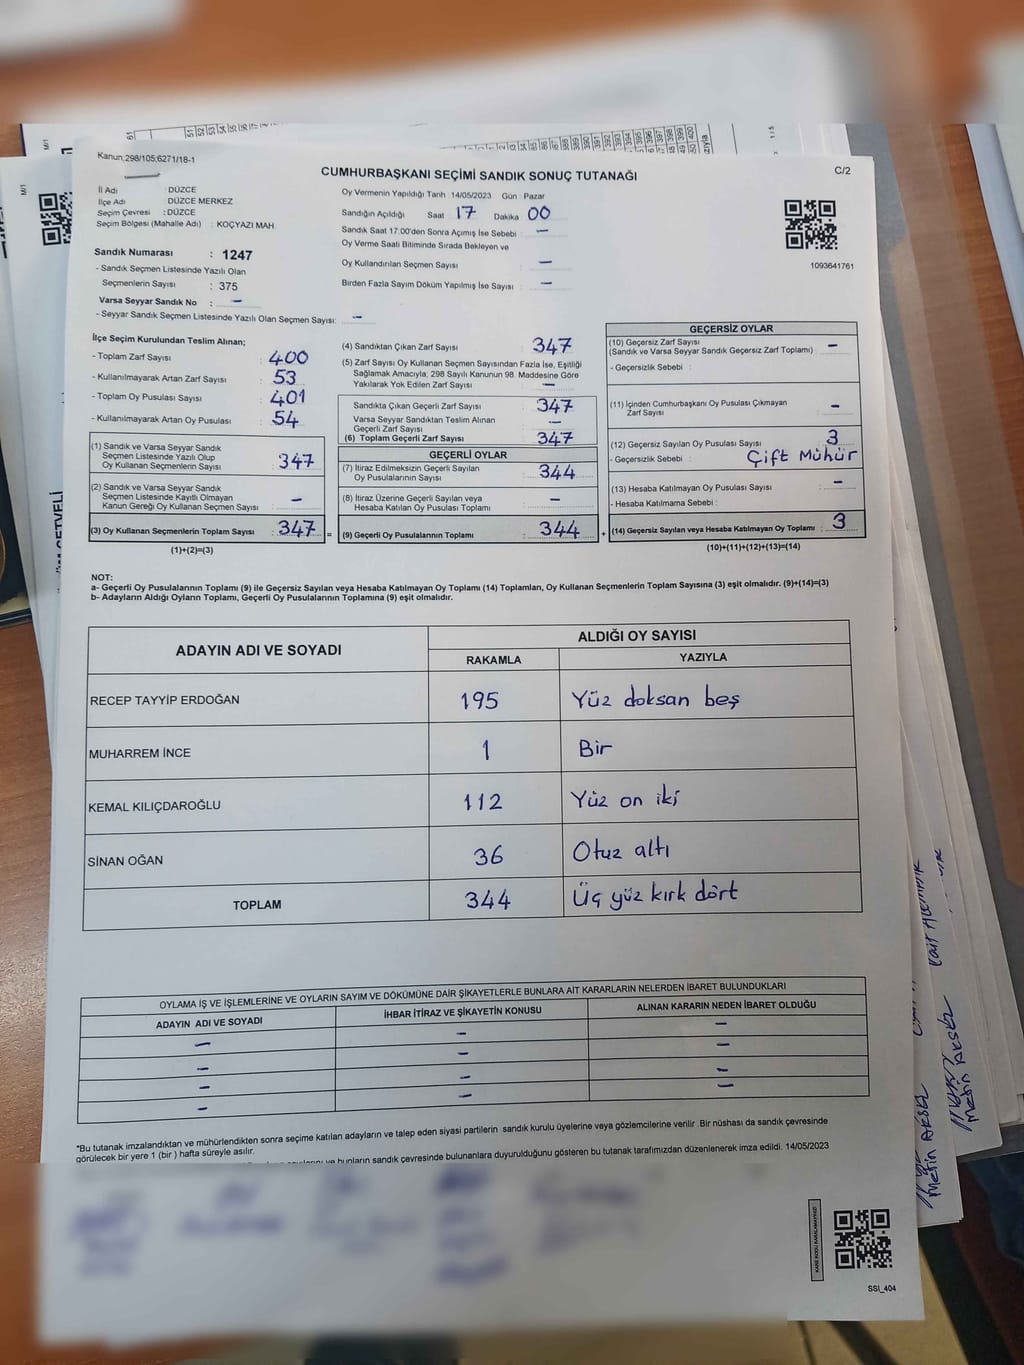 Kanun;298/105;6271/18-1
CUMHURBAŞKANI SEÇİMİ SANDIK SONUÇ TUTANAĞI
C/2
İl Adı : DÜZCE
İlçe Adı : DÜZCE MERKEZ
Seçim Çevresi : DÜZCE
Seçim Bölgesi (Mahalle Adı) : KOÇYAZI MAH.
Oy Vermenin Yapıldığı Tarih 14/05/2023 Gün : Pazar
Sandığın Açıldığı Saat 17 Dakika 00
Sandık Saat 17:00'den Sonra Açımış İse Sebebi : -
Oy Verme Saati Bitiminde Sırada Bekleyen ve
Oy Kullandırılan Seçmen Sayısı : -
Birden Fazla Sayım Döküm Yapılmış İse Sayısı : -
1093641761
Sandık Numarası : 1247
- Sandık Seçmen Listesinde Yazılı Olan
Seçmenlerin Sayısı : 375
Varsa Seyyar Sandık No : -
- Seyyar Sandık Seçmen Listesinde Yazılı Olan Seçmen Sayısı: -
İlçe Seçim Kurulundan Teslim Alınan;
- Toplam Zarf Sayısı : 400
- Kullanılmayarak Artan Zarf Sayısı : 53
- Toplam Oy Pusulası Sayısı : 401
- Kullanılmayarak Artan Oy Pusulası : 54
(1) Sandık ve Varsa Seyyar Sandık
Seçmen Listesinde Yazılı Olup
Oy Kullanan Seçmenlerin Sayısı : 347
(2) Sandık ve Varsa Seyyar Sandık
Seçmen Listesinde Kayıtlı Olmayan
Kanun Gereği Oy Kullanan Seçmen Sayısı : -
(3) Oy Kullanan Seçmenlerin Toplam Sayısı : 347
(1)+(2)=(3)
(4) Sandıktan Çıkan Zarf Sayısı : 347
(5) Zarf Sayısı Oy Kullanan Seçmen Sayısından Fazla İse, Eşitliği
Sağlamak Amacıyla; 298 Sayılı Kanunun 98. Maddesine Göre
Yakılarak Yok Edilen Zarf Sayısı : -
Sandıkta Çıkan Geçerli Zarf Sayısı : 347
Varsa Seyyar Sandıktan Teslim Alınan
Geçerli Zarf Sayısı : -
(6) Toplam Geçerli Zarf Sayısı : 347
GEÇERLİ OYLAR
(7) İtiraz Edilmeksizin Geçerli Sayılan
Oy Pusulalarının Sayısı : 344
(8) İtiraz Üzerine Geçerli Sayılan veya
Hesaba Katılan Oy Pusulası Toplamı : -
= (9) Geçerli Oy Pusulalarının Toplamı : 344 +
GEÇERSİZ OYLAR
(10) Geçersiz Zarf Sayısı
(Sandık ve Varsa Seyyar Sandık Geçersiz Zarf Toplamı) : -
- Geçersizlik Sebebi :
(11) İçinden Cumhurbaşkanı Oy Pusulası Çıkmayan
Zarf Sayısı : -
(12) Geçersiz Sayılan Oy Pusulası Sayısı : 3
- Geçersizlik Sebebi : Çift Mühür
(13) Hesaba Katılmayan Oy Pusulası Sayısı : -
- Hesaba Katılmama Sebebi :
(14) Geçersiz Sayılan veya Hesaba Katılmayan Oy Toplamı : 3
(10)+(11)+(12)+(13)=(14)
NOT:
a- Geçerli Oy Pusulalarının Toplamı (9) ile Geçersiz Sayılan veya Hesaba Katılmayan Oy Toplamı (14) Toplamları, Oy Kullanan Seçmenlerin Toplam Sayısına (3) eşit olmalıdır. (9)+(14)=(3)
b- Adayların Aldığı Oyların Toplamı, Geçerli Oy Pusulalarının Toplamına (9) eşit olmalıdır.
ADAYIN ADI VE SOYADI
ALDIĞI OY SAYISI
RAKAMLA YAZIYLA
RECEP TAYYİP ERDOĞAN 195 Yüz doksan beş
MUHARREM İNCE 1 Bir
KEMAL KILIÇDAROĞLU 112 Yüz on iki
SİNAN OĞAN 36 Otuz altı
TOPLAM 344 Üç yüz kırk dört
OYLAMA İŞ VE İŞLEMLERİNE VE OYLARIN SAYIM VE DÖKÜMÜNE DAİR ŞİKAYETLERLE BUNLARA AİT KARARLARIN NELERDEN İBARET BULUNDUKLARI
ADAYIN ADI VE SOYADI İHBAR İTİRAZ VE ŞİKAYETİN KONUSU ALINAN KARARIN NEDEN İBARET OLDUĞU
- - -
- - -
- - -
- - -
*Bu tutanak imzalandıktan ve mühürlendikten sonra seçime katılan adayların ve talep eden siyasi partilerin sandık kurulu üyelerine veya gözlemcilerine verilir .Bir nüshası da sandık çevresinde
görülecek bir yere 1 (bir ) hafta süreyle asılır.
ve bunların sandık çevresinde bulunanlara duyurulduğunu gösteren bu tutanak tarafımızdan düzenlenerek imza edildi. 14/05/2023
KARE KODU KARALAMAYINIZ!
SSI_404
M/1
M/1
1 / 5
Metin AKSEL
Metin AKSEL